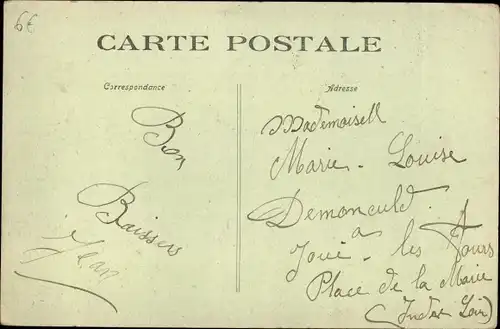 6€
CARTE POSTALE
Correspondance
Adresse
Bon
Baisers
Jean
Mademoisell
Marie-Louise
Demonculd
a
Joué-les Tours
Place de la Marie
(Indre Loir)